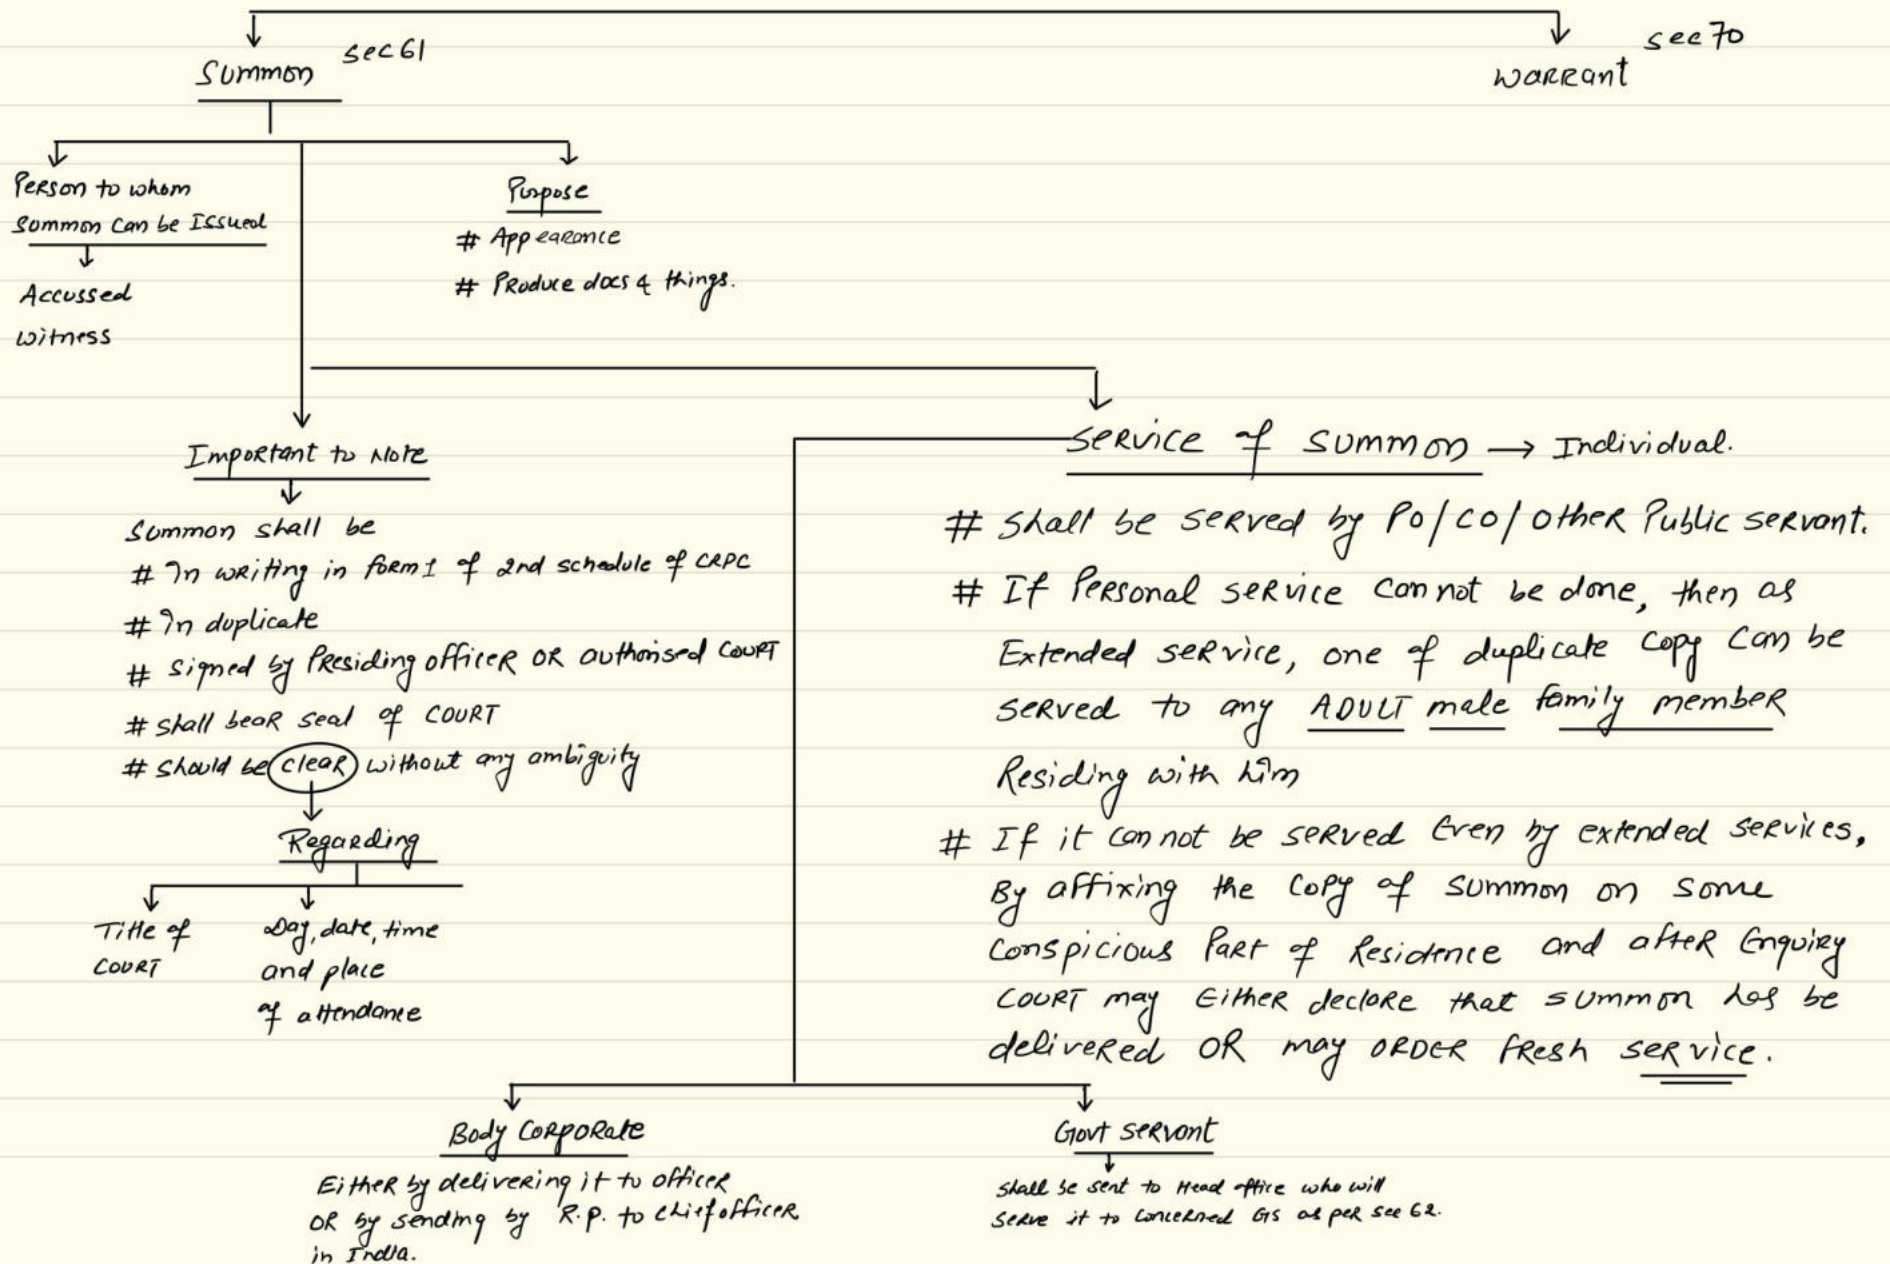 Summon sec 61
Warrant sec 70
Person to whom
Summon can be Issued
Accussed
witness
Purpose
# Appearance
# Produce docs & things.
Important to Note
Summon shall be
# In writing in form 1 of 2nd schedule of CRPC
# In duplicate
# Signed by Presiding officer OR authorised COURT
# shall bear seal of COURT
# should be clear without any ambiguity
Regarding
Title of
COURT
Day, date, time
and place
of attendance
Service of Summon → Individual.
# Shall be served by PO/CO/Other Public servant.
# If Personal service can not be done, then as
Extended service, one of duplicate copy can be
served to any ADULT male family member
Residing with him
# If it can not be served Even by extended services,
By affixing the copy of summon on some
Conspicious Part of Residence and after Enquiry
COURT may Either declare that summon has be
delivered OR may ORDER fresh service.
Body Corporate
Either by delivering it to officer
OR by sending by R.p. to chief officer
in India.
Govt servant
shall be sent to Head office who will
serve it to concerned GS as per sec 62.